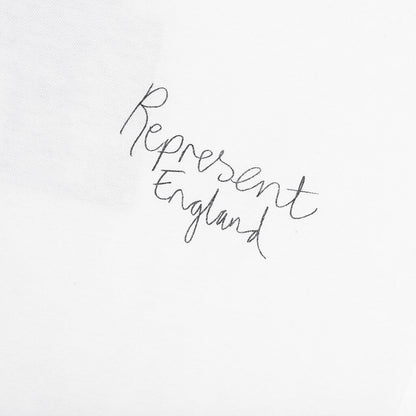 Represent
England